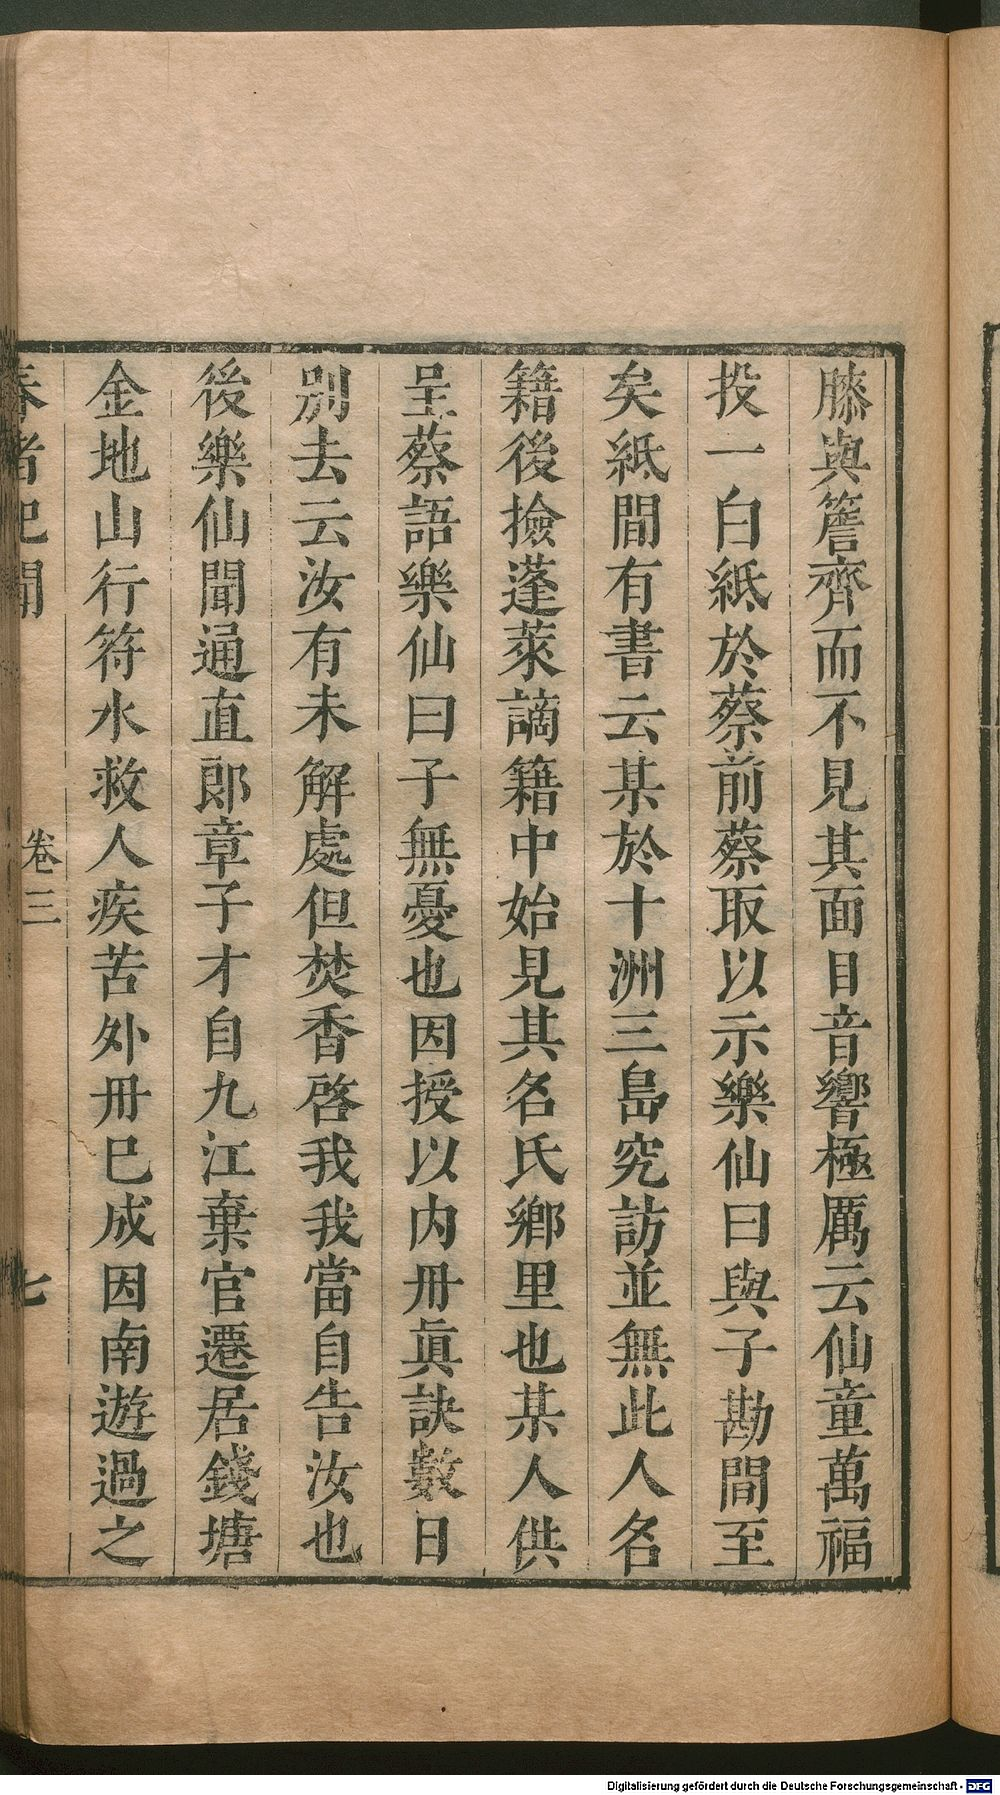 膝與簷齊而不見其面目音響極厲云仙童萬福
投一白紙於蔡前蔡取以示樂仙曰與子勘間至
矣紙間有書云某於十洲三島究訪並無此人名
籍後撿蓬萊謫籍中始見其名氏鄉里也某人供
呈蔡語樂仙曰子無憂也因授以内丹眞訣數日
别去云汝有未解處但焚香啓我我當自告汝也
後樂仙聞通直郎章子才自九江棄官遷居錢塘
金地山行符水救人疾苦外丹巳成因南遊過之
春渚紀聞 卷三 七
Digitalisierung gefördert durch die Deutsche Forschungsgemeinschaft - DFG